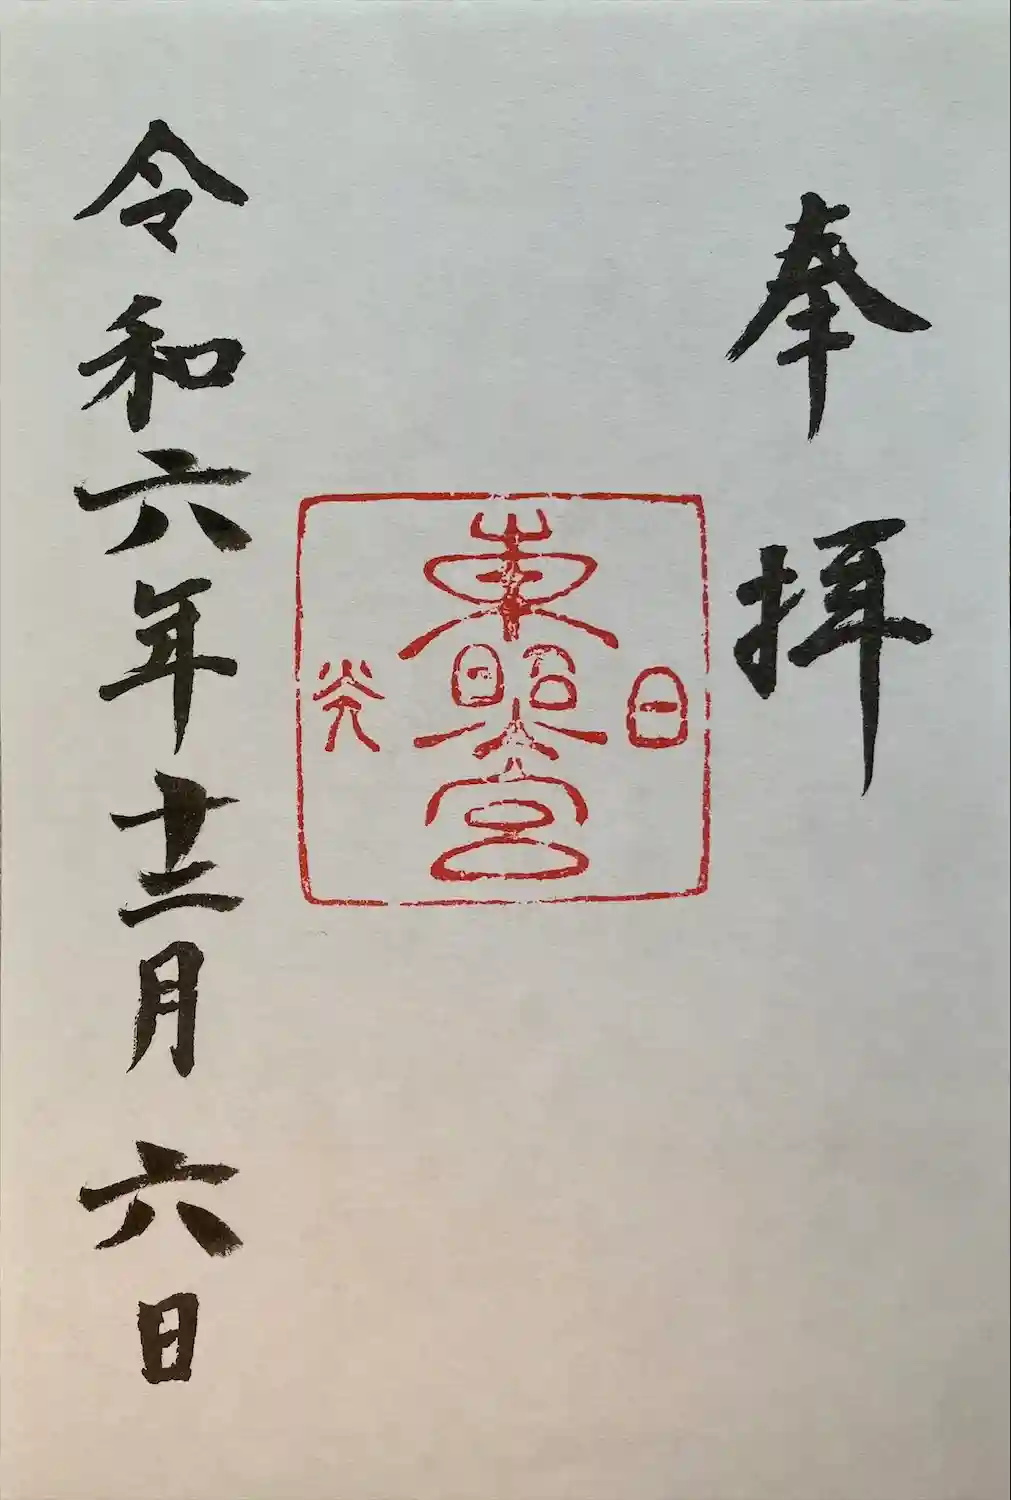 奉拝
日光
東照宮
令和六年十二月六日